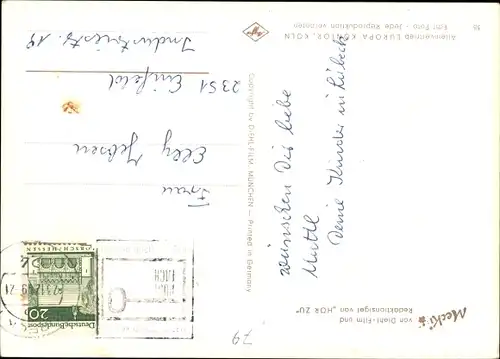 Mecki
von Diehl-Film und
Redaktionsigel von „HÖR ZU"
wünschen Dir liebe
Mutti
Deine Kinder in Lübeck
Alleinvertrieb EUROPA KONTOR, KÖLN
Echt Foto - Jede Reproduktion verboten
Copyright by DIEHL-FILM, MÜNCHEN — Printed in Germany
Frau
Elly Jebsen
2351 Einfeld
Industriestr. 19
Deutsche Bundespost
20
79